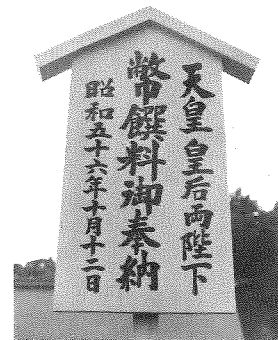 天皇皇后両陛下
幣饌料御奉納
昭和五十六年十月十二日